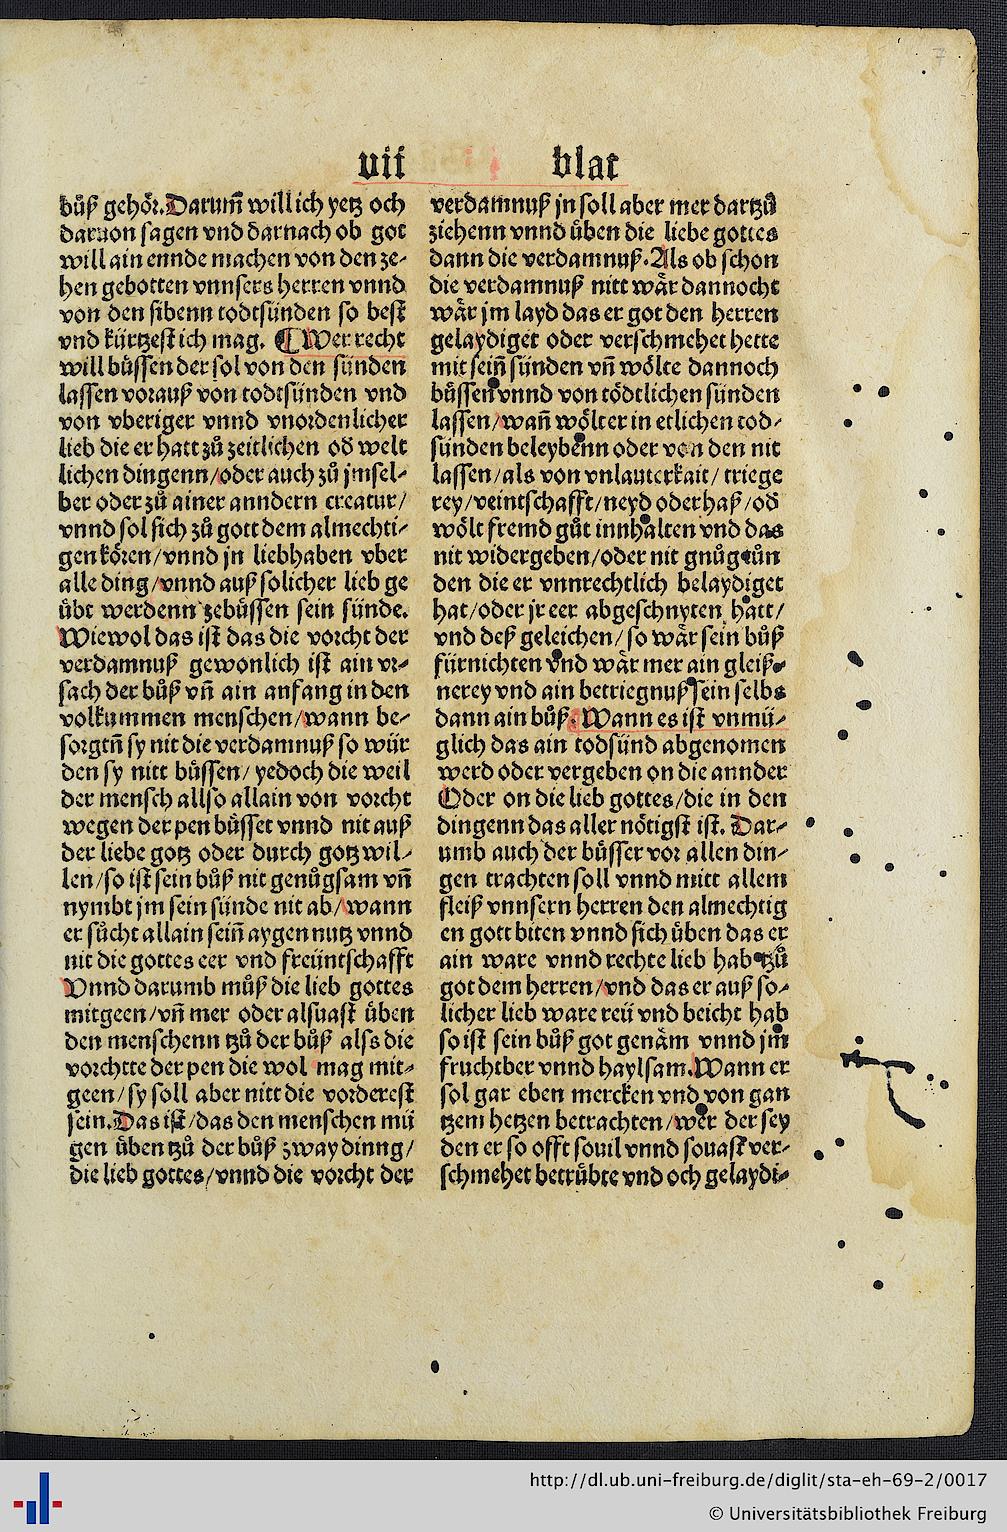 vij blat
bůß gehör. Darum̃ will ich yetz och
daruon sagen vnd darnach ob got
will ain ennde machen von den ze-
hen gebotten vnnsers herren vnnd
von den sibenn todtsünden so best
vnd kürtzest ich mag. ¶ Wer recht
will büssen der sol von den sünden
lassen vorauß von todtsünden vnd
von vberiger vnnd vnordenlicher
lieb die er hatt zů zeitlichen od̄ welt
lichen dingenn/oder auch zů jmsel-
ber oder zů ainer anndern creatur/
vnnd sol sich zů gott dem almechti-
gen kören/vnnd jn liebhaben vber
alle ding/vnnd auß solicher lieb ge
übt werdenn zebüssen sein sünde.
Wiewol das ist das die vorcht der
verdamnuß gewonlich ist ain vr-
sach der bůß vn̄ ain anfang in den
volkummen menschen/wann be-
sorgtn̄ sy nit die verdamnuß so wür
den sy nitt büssen/ yedoch die weil
der mensch allso allain von vorcht
wegen der pen büsset vnnd nit auß
der liebe gotz oder durch gotz wil-
len/so ist sein bůß nit genůgsam vn̄
nymbt jm sein sünde nit ab/wann
er sůcht allain sein̄ aygen nutz vnnd
nit die gottes eer vnd freüntschafft
Vnnd darumb můß die lieb gottes
mitgeen/vn̄ mer oder alsuast üben
den menschenn tzů der bůß alss die
vorchtte der pen die wol mag mit-
geen/sy soll aber nitt die vorderest
sein. Das ist/das den menschen mü
gen üben tzů der bůß zway dinng/
die lieb gottes/vnnd die vorcht der
verdamnuß jn soll aber mer dartzů
ziehenn vnnd üben die liebe gottes
dann die verdamnuß. Als ob schon
die verdamnuß nitt wär dannocht
wär jm layd das er got den herren
gelaydiget oder verschmehet hette
mit sein̄ sünden vn̄ wölte dannoch
büssen vnnd von tödtlichen sünden
lassen/wan̄ wölt er in etlichen tod-
sünden beleybenn oder von den nit
lassen/als von vnlauterkait/ triege
rey/veintschafft/neyd oder haß/od̄
wölt fremd gůt innhalten vnd das
nit widergeben/oder nit gnůg tůn
den die er vnnrechtlich belaydiget
hat/oder jr eer abgeschnyten hatt/
vnd deß geleichen/so wär sein bůß
fürnichten vnd wär mer ain gleiß-
nerey vnd ain betriegnuß sein selbs
dann ain bůß. Wann es ist vnmü-
glich das ain todsünd abgenomen
werd oder vergeben on die annder
Oder on die lieb gottes/die in den
dingenn das aller nötigst ist. Dar-
umb auch der büsser vor allen din-
gen trachten soll vnnd mitt allem
fleiß vnnsern herren den almechtig
en gott biten vnnd sich üben das er
ain ware vnnd rechte lieb hab tzů
got dem herren/vnd das er auß so-
licher lieb ware reü vnd beicht hab
so ist sein bůß got genäm vnnd jm
fruchtber vnnd haylsam. Wann er
sol gar eben mercken vnd von gan
tzem hetzen betrachten/wer der sey
den er so offt souil vnnd souast ver-
schmehet betrübte vnd och gelaydi-
7
http://dl.ub.uni-freiburg.de/diglit/sta-eh-69-2/0017
© Universitätsbibliothek Freiburg